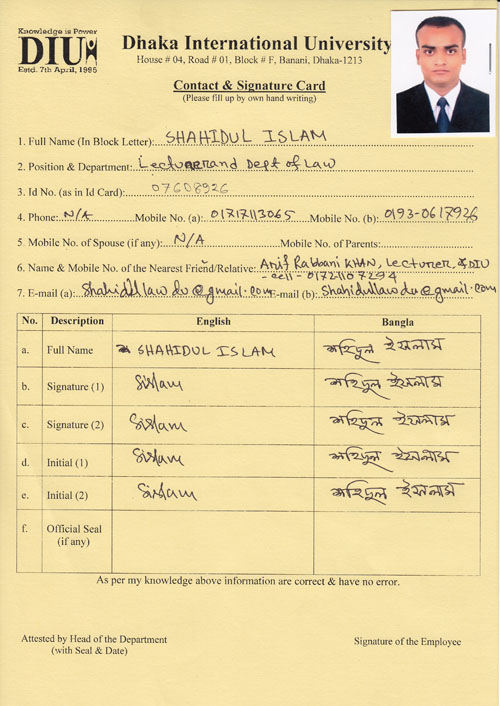 Knowledge is Power
DIU
Estd. 7th April, 1995
Dhaka International University
House # 04, Road # 01, Block # F, Banani, Dhaka-1213
Contact & Signature Card
(Please fill up by own hand writing)
1. Full Name (In Block Letter): SHAHIDUL ISLAM
2. Position & Department: Lecturer and Dept of Law
3. Id No. (as in Id Card): 07608926
4. Phone: N/A Mobile No. (a): 01717113065 Mobile No. (b): 0193-0617926
5. Mobile No. of Spouse (if any): N/A Mobile No. of Parents:
6. Name & Mobile No. of the Nearest Friend/Relative: Arif Rabbani KHAN, Lecturer, DIU
- cell - 01721107294
7. E-mail (a): Shahidullawdu@gmail.com E-mail (b): Shahidullawdu@gmail.com
No. Description English Bangla
a. Full Name SHAHIDUL ISLAM শহিদুল ইসলাম
b. Signature (1) Sislam শহিদুল ইসলাম
c. Signature (2) Sislam শহিদুল ইসলাম
d. Initial (1) Sislam শহিদুল ইসলাম
e. Initial (2) Sislam শহিদুল ইসলাম
f. Official Seal
(if any)
As per my knowledge above information are correct & have no error.
Attested by Head of the Department Signature of the Employee
(with Seal & Date)